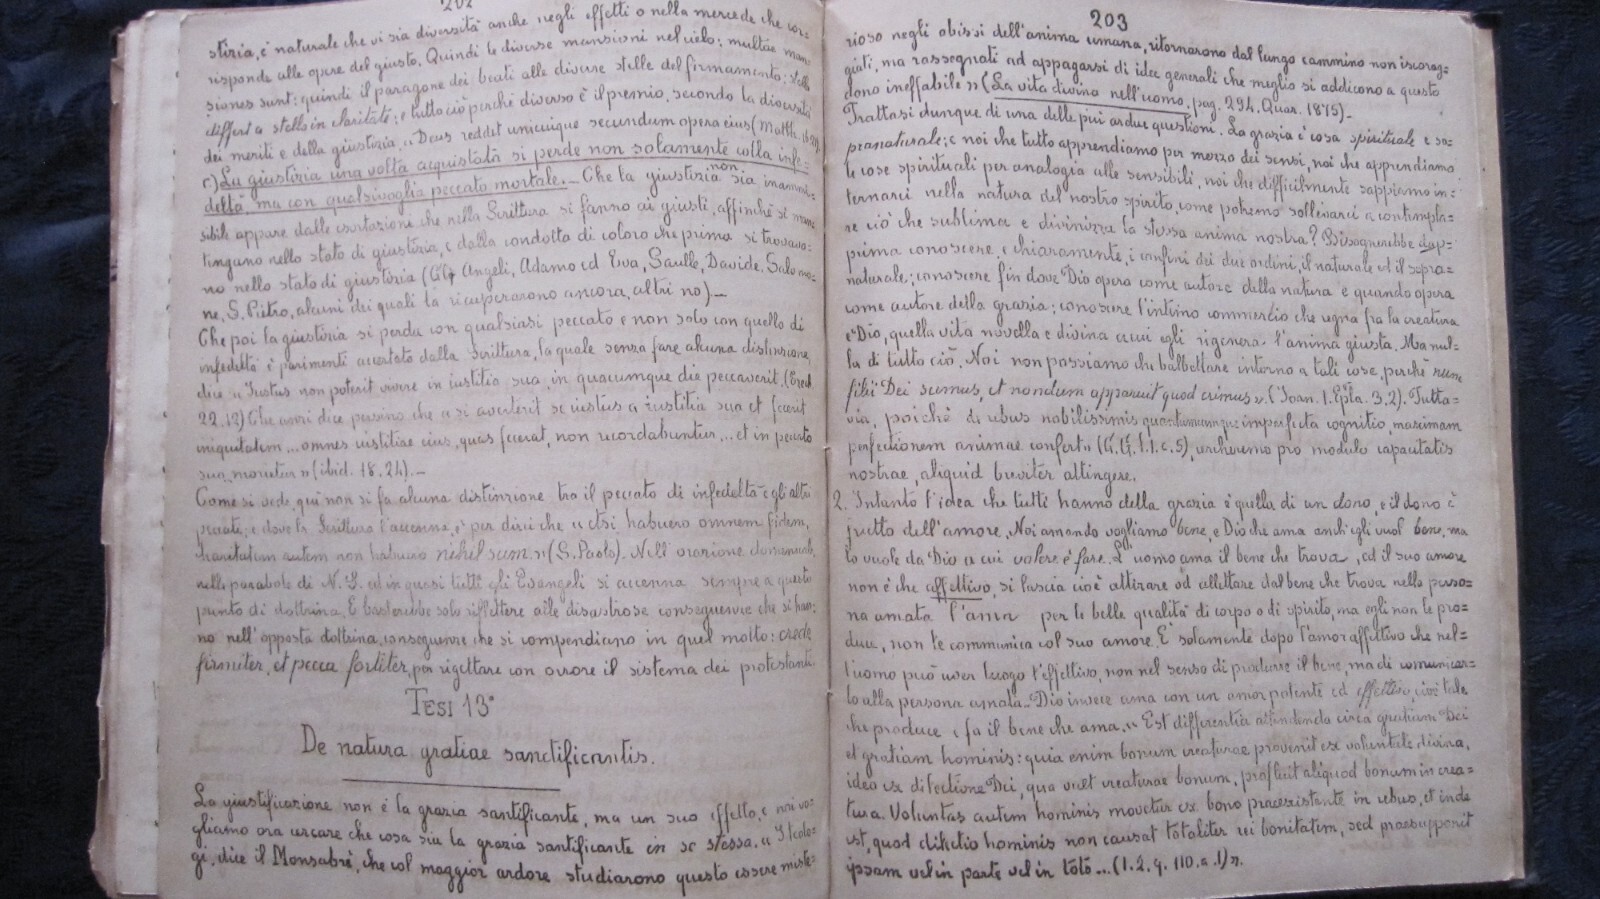 202
stizia, è naturale che vi sia diversità anche negli effetti o nella mercede che cor=
risponde alle opere del giusto. Quindi le diverse mansioni nel cielo: multae man=
siones sunt: quindi il paragone dei beati alle diverse stelle del firmamento: stella
differt a stella in claritate: e tutto ciò perchè diverso è il premio, secondo la diversità
dei meriti e della giustizia. „ Deus reddet unicuique secundum opera eius (Matth.
c) La giustizia una volta acquistata si perde non solamente colla infe=
deltà, ma con qualsivoglia peccato mortale. _ Che la giustizia non sia inammi=
sibile appare dalle esortazioni che nella Scrittura si fanno ai giusti, affinchè si man=
tengano nello stato di giustizia, e dalla condotta di coloro che prima si trovava=
no nello stato di giustizia (Gli Angeli, Adamo ed Eva, Saulle, Davide, Salomo=
ne, S. Pietro, alcuni dei quali la ricuperarono ancora, altri no) _
Che poi la giustizia si perda con qualsiasi peccato e non solo con quello di
infedeltà è parimenti accertato dalla Scrittura, la quale senza fare alcuna distinzione,
dice „ Iustus non poterit vivere in iustitia sua, in quacumque die peccaverit. (Ezech
22.12) Che anzi dice persino che „ si averterit se iustus a iustitia sua et fecerit
iniquitatem ... omnes iustitiae eius, quas fecerat, non recordabuntur, ... et in peccato
suo morietur » (ibid. 18. 24). _
Come si vede, qui non si fa alcuna distinzione tra il peccato di infedeltà e gli altri
peccati; e dove la Scrittura l'accenna, è per dirci che „ etsi habuero omnem fidem,
charitatem autem non habuero nihil sum » (S. Paolo). Nell'orazione domenicale,
nelle parabole di N. S. ed in quasi tutti gli Evangeli si accenna sempre a questo
punto di dottrina. E basterebbe solo riflettere alle disastrose conseguenze che si han=
no nell'opposta dottrina, conseguenze che si compendiano in quel motto: crede
firmiter, et pecca fortiter, per rigettare con orrore il sistema dei protestanti
TESI 13ª
De natura gratiae sanctificantis.
La giustificazione non è la grazia santificante, ma un suo effetto, e noi vo=
gliamo ora cercare che cosa sia la grazia santificante in se stessa. „ I teolo=
gi, dice il Monsabrè, che col maggior ardore studiarono questo essere miste=
203
rioso negli abissi dell'anima umana, ritornarono dal lungo cammino non iscorag=
giati, ma rassegnati ad appagarsi di idee generali che meglio si addicono a questo
dono ineffabile » (La vita divina nell'uomo, pag. 294. Quar. 1875) _
Trattasi dunque di una delle più ardue questioni. La grazia è cosa spirituale e so=
pranaturale: e noi che tutto apprendiamo per mezzo dei sensi, noi che apprendiamo
le cose spirituali per analogia alle sensibili, noi che difficilmente sappiamo in=
ternarci nella natura del nostro spirito, come potremo sollevarci a contempla=
re ciò che sublima e divinizza la stessa anima nostra? Bisognerebbe dap=
prima conoscere, e chiaramente, i confini dei due ordini, il naturale ed il sopra=
naturale; conoscere fin dove Dio opera come autore della natura e quando opera
come autore della grazia; conoscere l'intimo commercio che regna fra la creatura
e Dio, quella vita novella e divina a cui egli rigenera l'anima giusta. Ma nul=
la di tutto ciò. Noi non possiamo che balbettare intorno a tali cose, perchè nunc
filii Dei sumus, et nondum apparuit quod erimus ». (Joan. 1. Epla. 3. 2). Tutta=
via, poichè de rebus nobilissimis quantumcumque imperfecta cognitio, maximam
perfectionem animae confert » (C. G. l. 1. c. 5), cercheremo pro modulo capacitatis
nostrae, aliquid breviter attingere.
2. Intanto l'idea che tutti hanno della grazia è quella di un dono, e il dono è
frutto dell'amore. Noi amando vogliamo bene, e Dio che ama anch'egli vuol bene, ma
lo vuole da Dio a cui volere è fare. L'uomo ama il bene che trova, ed il suo amore
non è che affettivo, si lascia cioè attirare od allettare dal bene che trova nella perso=
na amata l'ama per le belle qualità di corpo o di spirito, ma egli non le pro=
duce, non le communica col suo amore. E' solamente dopo l'amor affettivo che nel=
l'uomo può aver luogo l'effettivo, non nel senso di produrre il bene, ma di comunicar=
lo alla persona amata. Dio invece ama con un amor potente ed effettivo, cioè tale
che produce e fa il bene che ama. „ Est differentia attendenda circa gratiam Dei
et gratiam hominis: quia enim bonum creaturae provenit ex voluntate divina,
ideo ex dilectione Dei, qua vult creaturae bonum, profluit aliquod bonum in crea=
tura. Voluntas autem hominis movetur ex bono praeexistente in rebus, et inde
est, quod dilectio hominis non causat totaliter rei bonitatem, sed praesupponit
ipsam vel in parte vel in toto ... (1. 2. q. 110. a. 1) ».